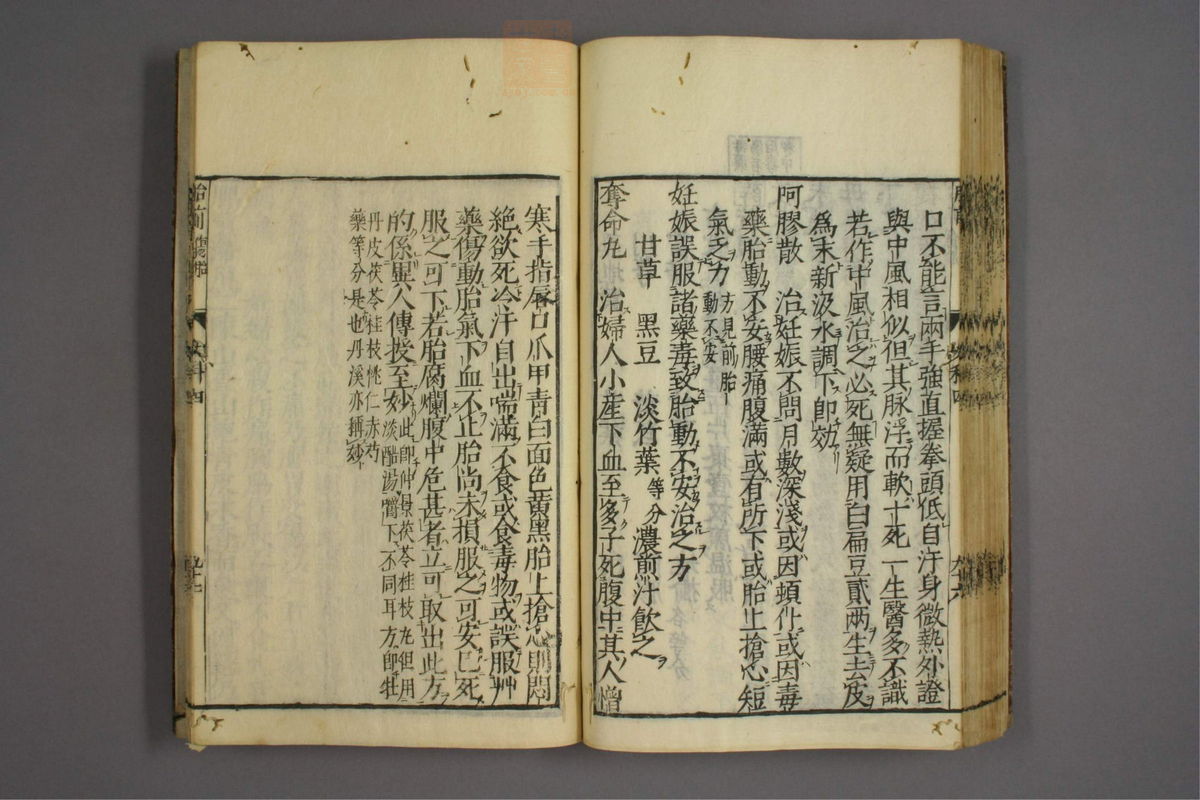 口不能言兩手強直握拳頭低自汗身微熱外證
與中風相似但其脉浮而軟十死一生醫多不識
若作中風治之必死無疑用白扁豆貳两生去皮
爲末新汲水調下即効
阿膠散 治妊娠不問月數深淺或因頓仆或因毒
藥胎動不安腰痛腹滿或有所下或胎上搶心短
氣乏力 方見前胎動不安
妊娠誤服諸藥毒致胎動不安治之方
甘草 黑豆 淡竹葉 等分 濃煎汁飲之
奪命丸 治婦人小產下血至多子死腹中其人憎
寒手指唇口爪甲青白面色黄黑胎上搶心則悶
絶欲死冷汗自出喘滿不食或食毒物或誤服艸
藥傷動胎氣下血不止胎尚未損服之可安已死
服之可下若胎腐爛腹中危甚者立可取出此方
的係異人傳授至妙 此即仲景茯苓桂枝丸但用
淡醋湯嚼下不同耳方即牡
丹皮茯苓桂枝桃仁赤芍
藥等分是也丹溪亦稱妙
胎前
九十六